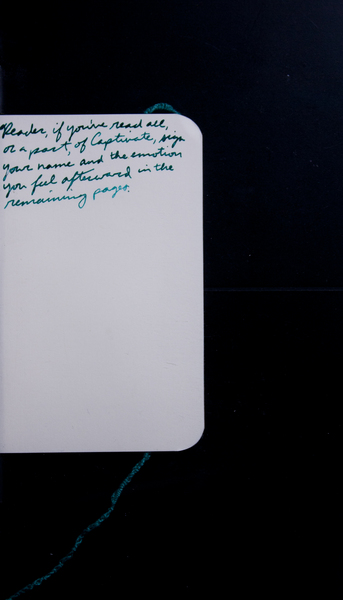 Reader, if you've read all,
or a part, of Captivate, sign
your name and the emotion
you feel afterward in the
remaining pages.